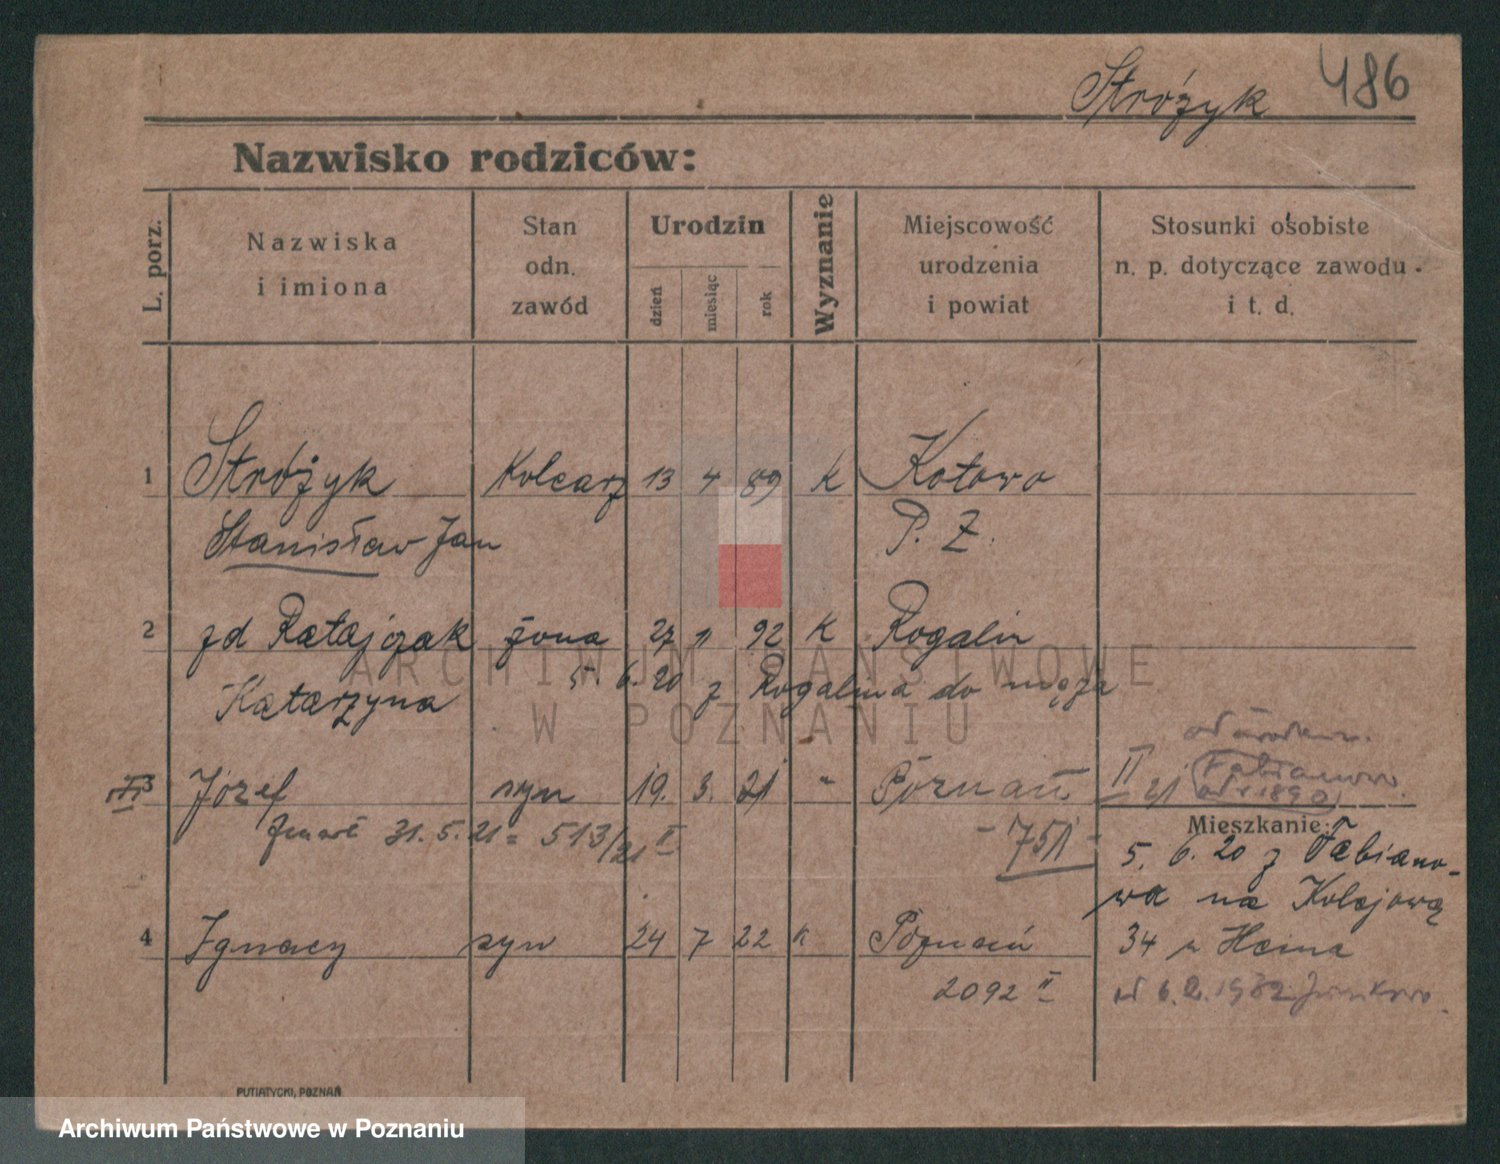 Stróżyk 486
Nazwisko rodziców:
L. porz.
Nazwiska
i imiona
Stan
odn.
zawód
Urodzin
dzień
miesiąc
rok
Wyznanie
Miejscowość
urodzenia
i powiat
Stosunki osobiste
n. p. dotyczące zawodu
i t. d.
1 Stróżyk Kolearz 13 4 89 K Kotowo
Stanisław Jan P. Z.
2 zd Ratajczak żona 27 11 92 K Rogalin
Katarzyna 5. 6. 20 z Rogalina do męża
3 Józef syn 19. 3. 21 " Poznań II 21 Fabianowo
od r 1890
zmarł 31. 5. 21 = 513/21 II - 751 -
Mieszkanie:
5. 6. 20 z Fabiano-
wa na Kolejową
4 Ignacy syn 24 7 22 K Poznań 34 u Heina
2092 II od 6.2.1932 Junikowo
PUTIATYCKI, POZNAŃ
ARCHIWUM PAŃSTWOWE
W POZNANIU
Archiwum Państwowe w Poznaniu